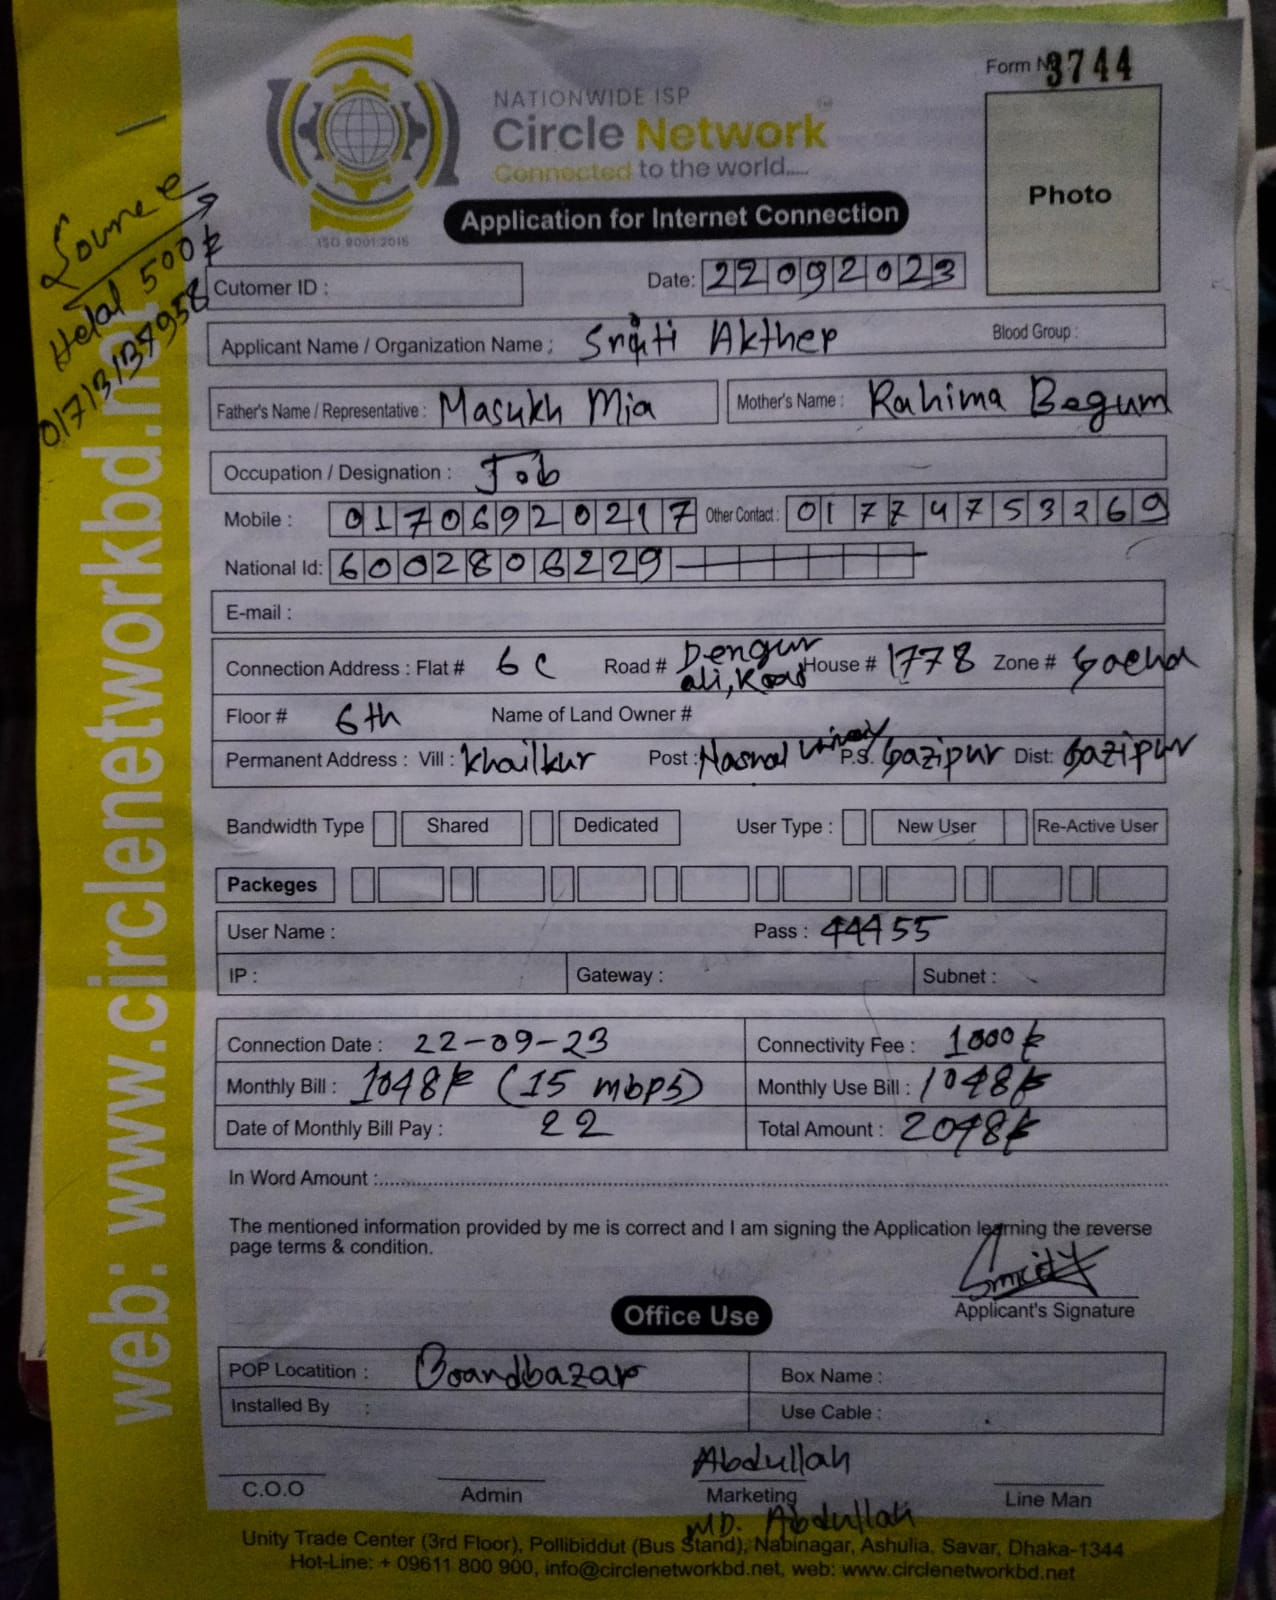 Form No 3744
NATIONWIDE ISP
Circle Network
Connected to the world.....
ISO 9001:2015
Application for Internet Connection
Photo
Helal 500৳
01713137958
Cutomer ID :
Date: 22092023
Applicant Name / Organization Name : Akther Blood Group :
Father's Name / Representative : Masukh Mia Mother's Name : Rahima Begum
Occupation / Designation : Job
Mobile : 01706920217 Other Contact : 01774753269
National Id: 6002806229
E-mail :
Connection Address : Flat # 6C Road # Dengur ali, Road House # 1778 Zone # Gacha
Floor # 6th Name of Land Owner #
Permanent Address : Vill : Khailkur Post : P.S. Gazipur Dist: Gazipur
Bandwidth Type Shared Dedicated User Type : New User Re-Active User
Packeges
User Name : Pass : 44455
IP : Gateway : Subnet :
Connection Date : 22-09-23 Connectivity Fee : 1000৳
Monthly Bill : 1048৳ (15 mbps) Monthly Use Bill : 1048৳
Date of Monthly Bill Pay : 22 Total Amount : 2048৳
In Word Amount :
The mentioned information provided by me is correct and I am signing the Application learning the reverse
page terms & condition.
Applicant's Signature
Office Use
POP Locatition : Boardbazar Box Name :
Installed By : Use Cable :
Abdullah
C.O.O Admin Marketing Line Man
MD. Abdullah
Unity Trade Center (3rd Floor), Pollibiddut (Bus Stand), Nabinagar, Ashulia, Savar, Dhaka-1344
Hot-Line: + 09611 800 900, info@circlenetworkbd.net, web: www.circlenetworkbd.net
web: www.circlenetworkbd.net